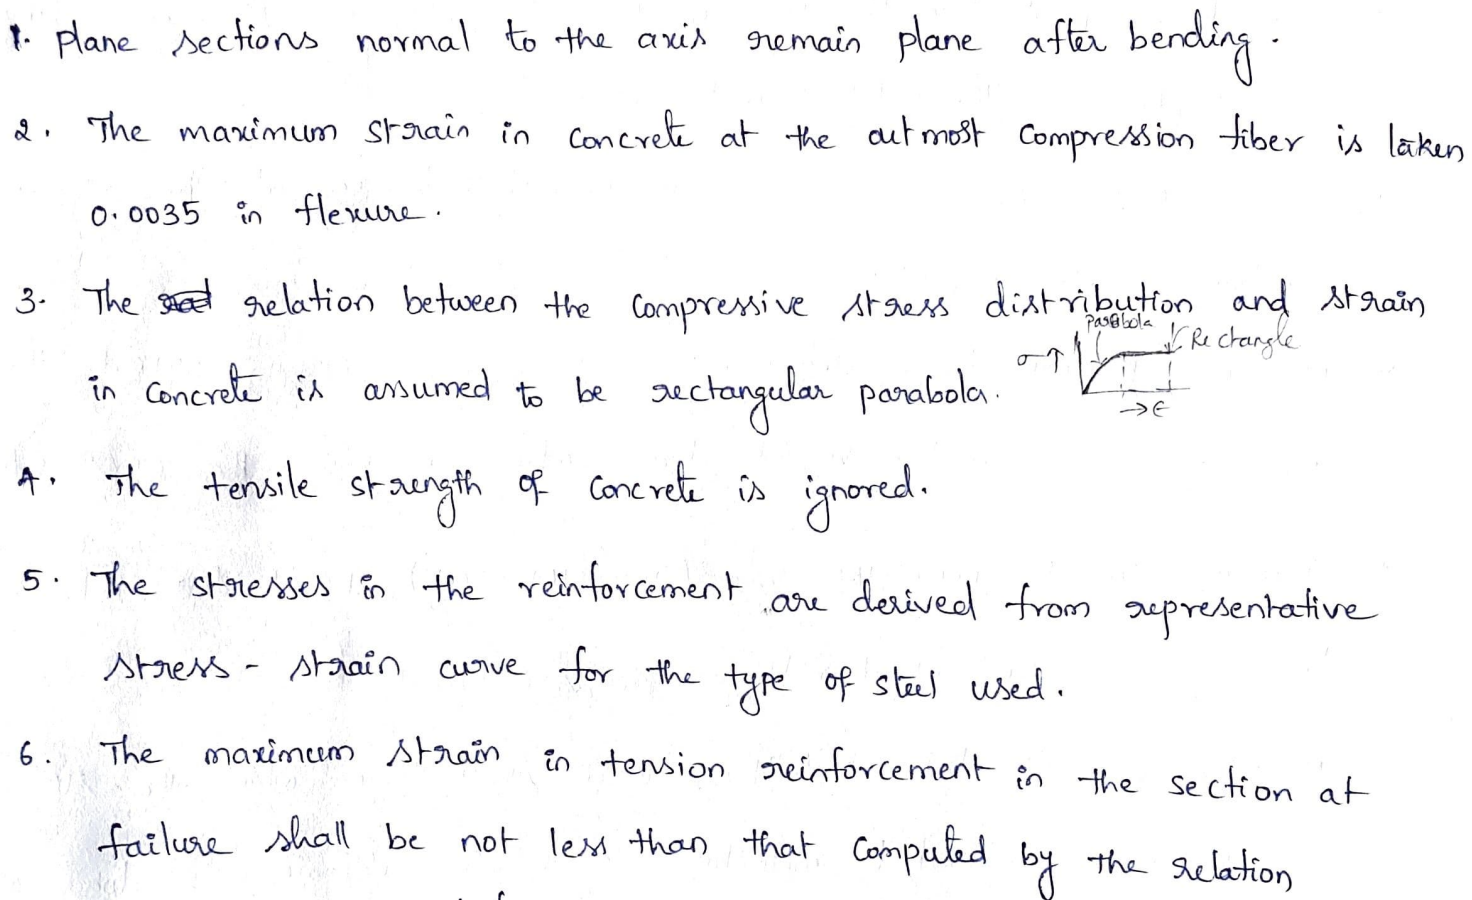 1. Plane sections normal to the axis remain plane after bending.
2. The maximum strain in concrete at the outmost compression fiber is taken
0.0035 in flexure.
3. The relation between the compressive stress distribution and strain
Parabola
Rectangle
σ↑
in concrete is assumed to be rectangular parabola.
→ϵ
4. The tensile strength of concrete is ignored.
5. The stresses in the reinforcement are derived from representative
stress - strain curve for the type of steel used.
6. The maximum strain in tension reinforcement in the section at
failure shall be not less than that computed by the relation